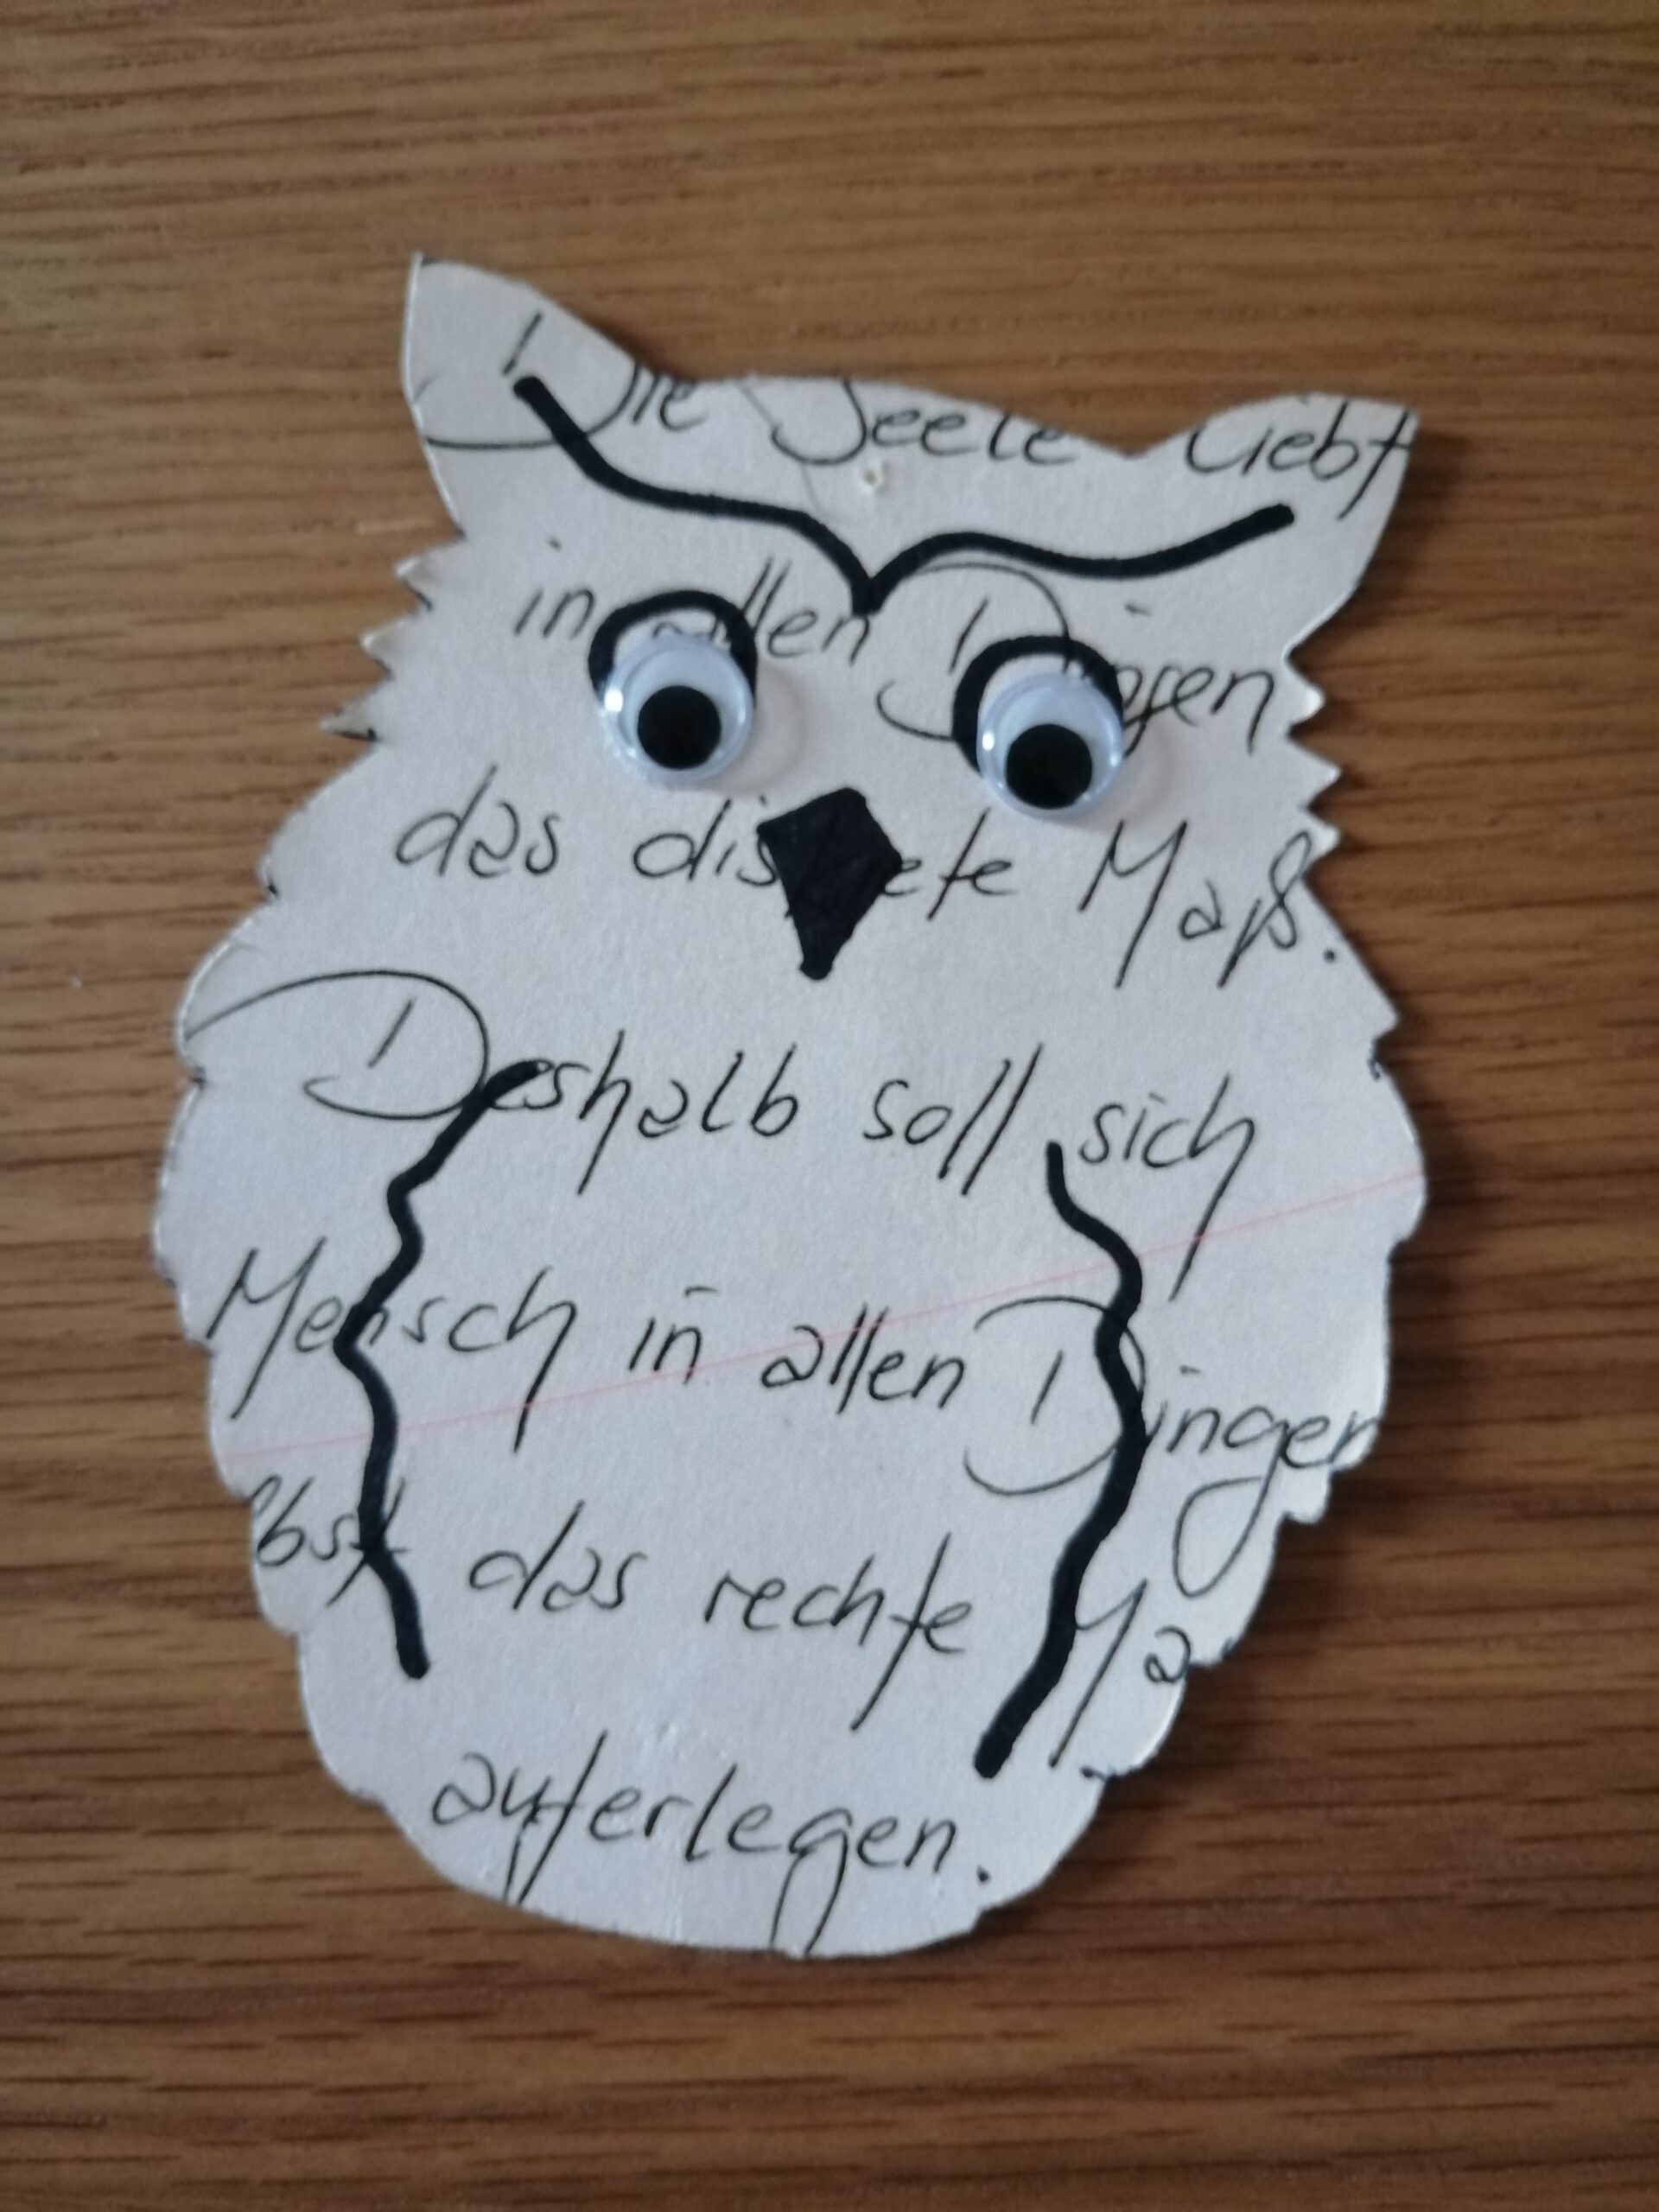 Die Seele liebt
in allen Dingen
das diskrete Maß.
Deshalb soll sich
Mensch in allen Dingen
lbst das rechte Ma
auferlegen.